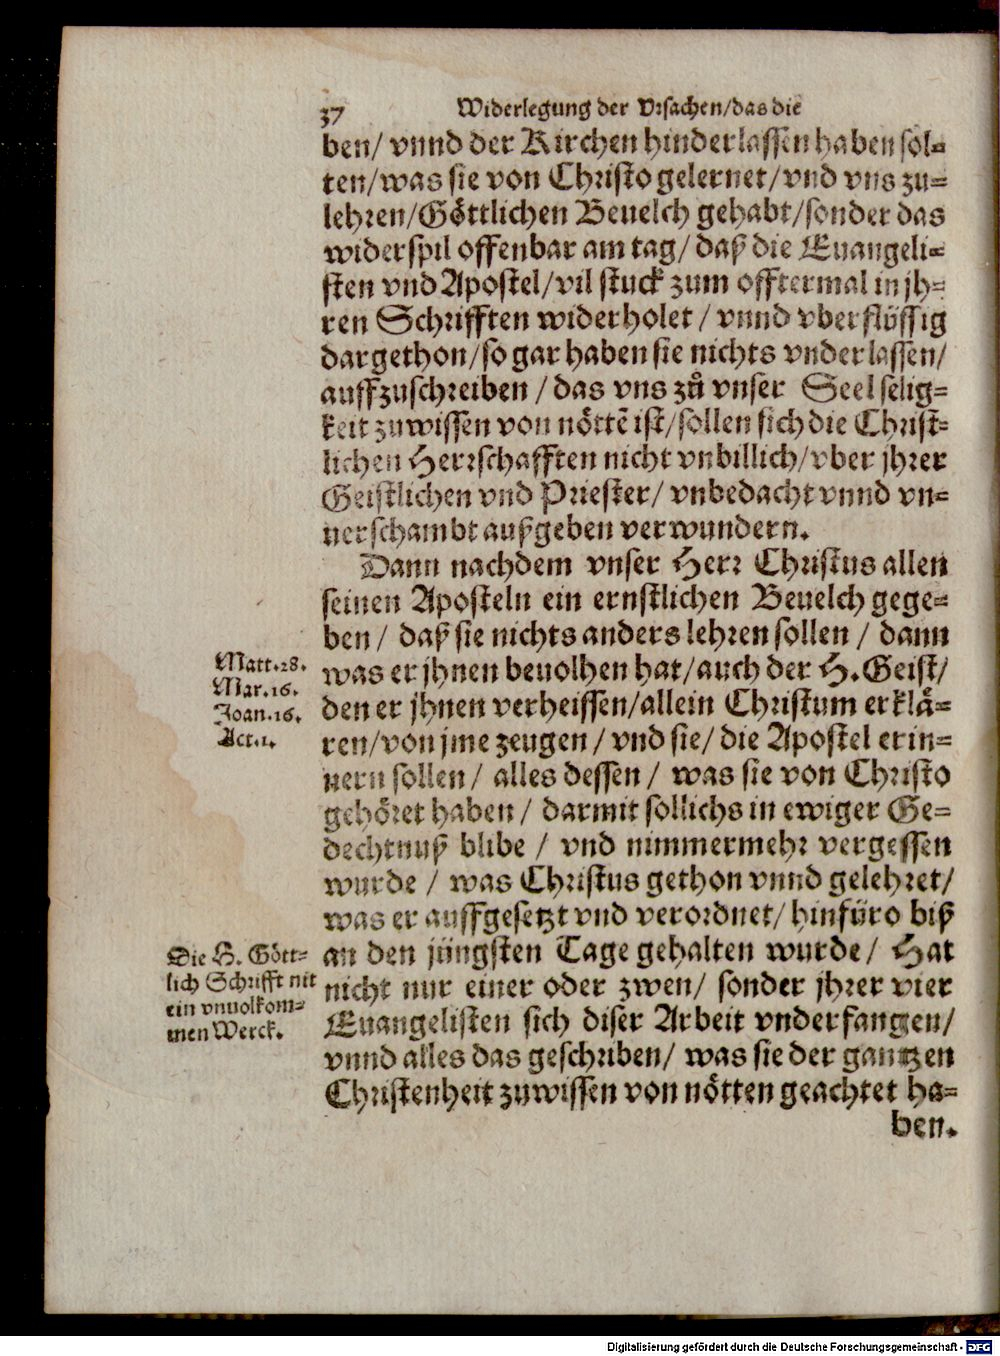 37 Widerlegung der Vrsachen/das die
ben/ vnnd der Kirchen hinderlassen haben sol=
ten/was sie von Christo gelernet/vnd vns zu=
lehren/Göttlichen Beuelch gehabt/sonder das
widerspil offenbar am tag/ daß die Euangeli=
sten vnd Apostel/vil stuck zum offtermal in jh=
ren Schrifften widerholet / vnnd vberflüssig
dargethon/so gar haben sie nichts vnderlassen/
auffzuschreiben / das vns zů vnser Seel selig=
keit zuwissen von nöttē ist/sollen sich die Christ=
lichen Herrschafften nicht vnbillich/vber jhrer
Geistlichen vnd Priester/ vnbedacht vnnd vn=
uerschambt außgeben verwundern.
Dann nachdem vnser Herr Christus allen
seinen Aposteln ein ernstlichen Beuelch gege=
ben / daß sie nichts anders lehren sollen / dann
Matt.28.
Mar.16.
Joan.16.
Act.1.
was er jhnen beuolhen hat/auch der H.Geist/
den er jhnen verheissen/allein Christum erklä=
ren/von jme zeugen / vnd sie/ die Apostel erin=
nern sollen / alles dessen / was sie von Christo
gehöret haben / darmit sollichs in ewiger Ge=
dechtnuß blibe / vnd nimmermehr vergessen
wurde / was Christus gethon vnnd gelehret/
was er auffgesetzt vnd verordnet/ hinfüro biß
Die H. Gött=
lich Schrifft nit
ein vnuolkom=
men Werck.
an den jüngsten Tage gehalten wurde / Hat
nicht nur einer oder zwen/ sonder jhrer vier
Euangelisten sich diser Arbeit vnderfangen/
vnnd alles das geschriben/ was sie der gantzen
Christenheit zuwissen von nötten geachtet ha=
ben.
Digitalisierung gefördert durch die Deutsche Forschungsgemeinschaft - DFG